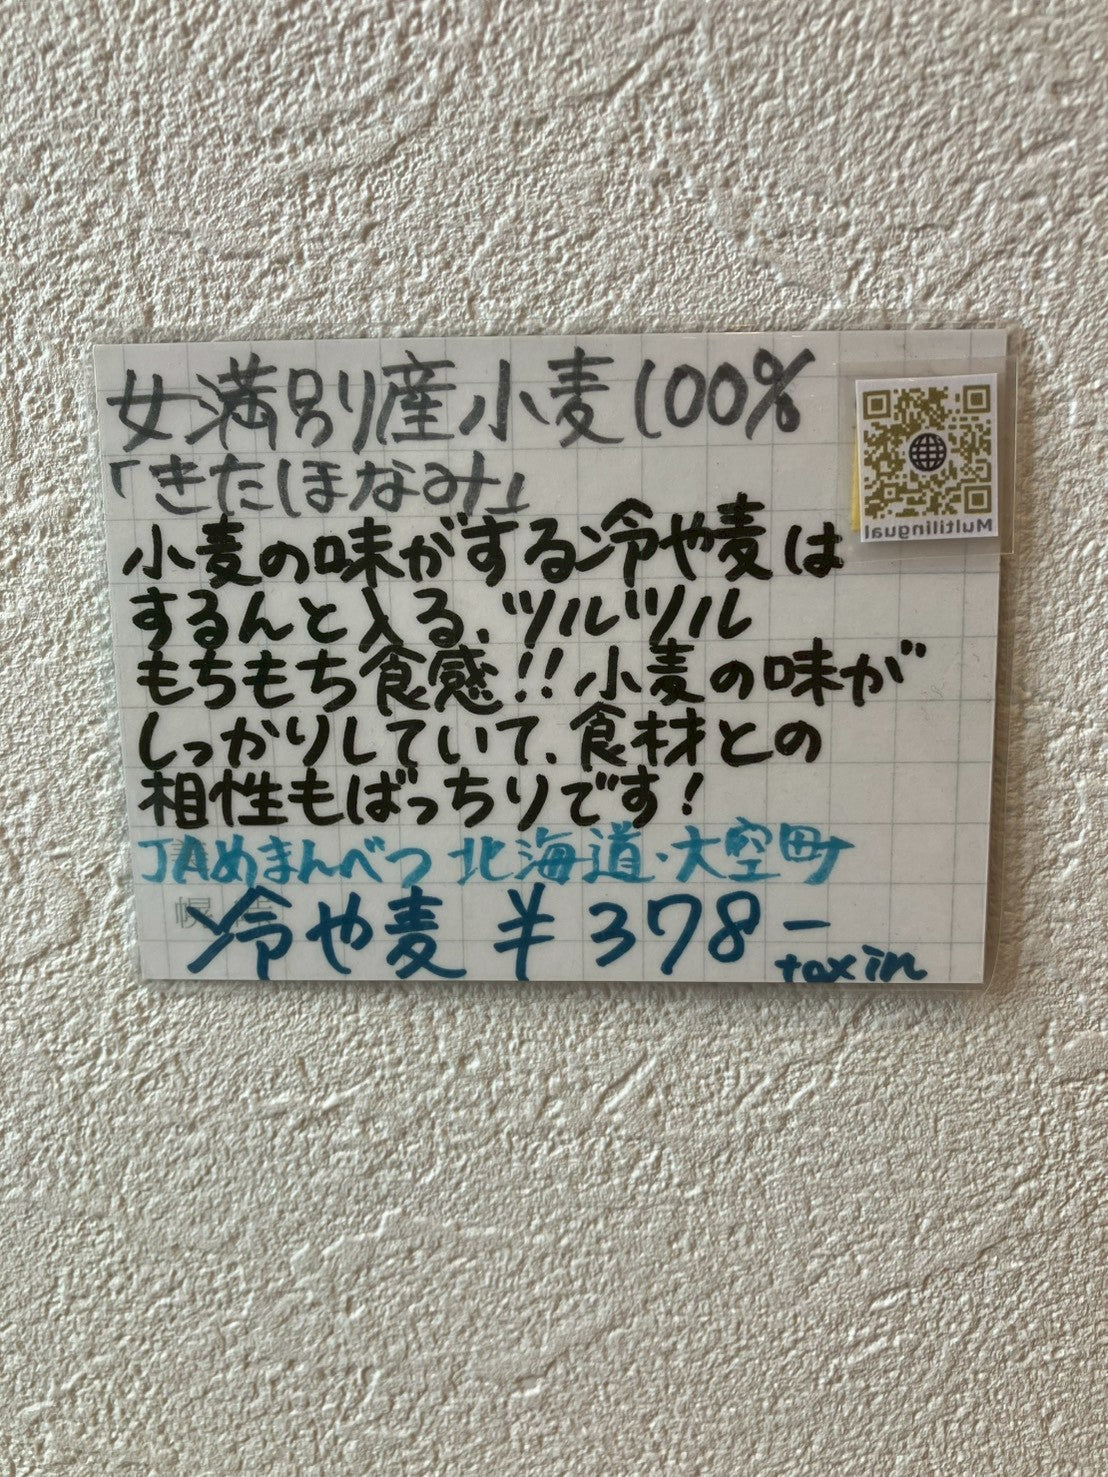 女満別産小麦100%
「きたほなみ」
小麦の味がする冷や麦は
するんと入る、ツルツル
もちもち食感!!小麦の味が
しっかりしていて、食材との
相性もばっちりです!
JAめまんべつ 北海道・大空町
冷や麦 ¥378-
tax in
Multilingual